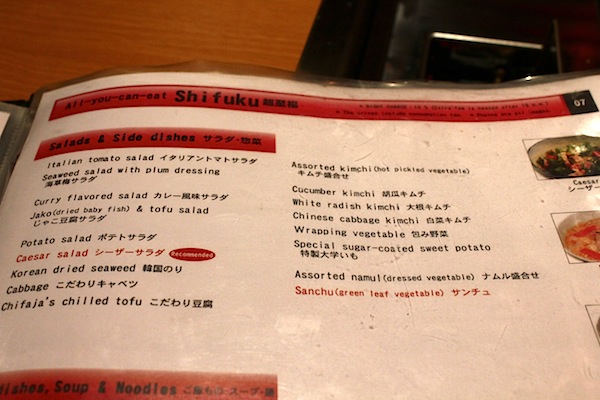 All-you-can-eat Shifuku 超至福
07
Salads & Side dishes サラダ・惣菜
Italian tomato salad イタリアントマトサラダ
Seaweed salad with plum dressing
海草梅サラダ
Curry flavored salad カレー風味サラダ
Jako(dried baby fish) & tofu salad
じゃこ豆腐サラダ
Potato salad ポテトサラダ
Caesar salad シーザーサラダ Recommended
Korean dried seaweed 韓国のり
Cabbage こだわりキャベツ
Chifaja's chilled tofu こだわり豆腐
Assorted kimchi(hot pickled vegetable)
キムチ盛合せ
Cucumber kimchi 胡瓜キムチ
White radish kimchi 大根キムチ
Chinese cabbage kimchi 白菜キムチ
Wrapping vegetable 包み野菜
Special sugar-coated sweet potato
特製大学いも
Assorted namul(dressed vegetable) ナムル盛合せ
Sanchu(green leaf vegetable) サンチュ
Caesar
シーザー
dishes, Soup & Noodles